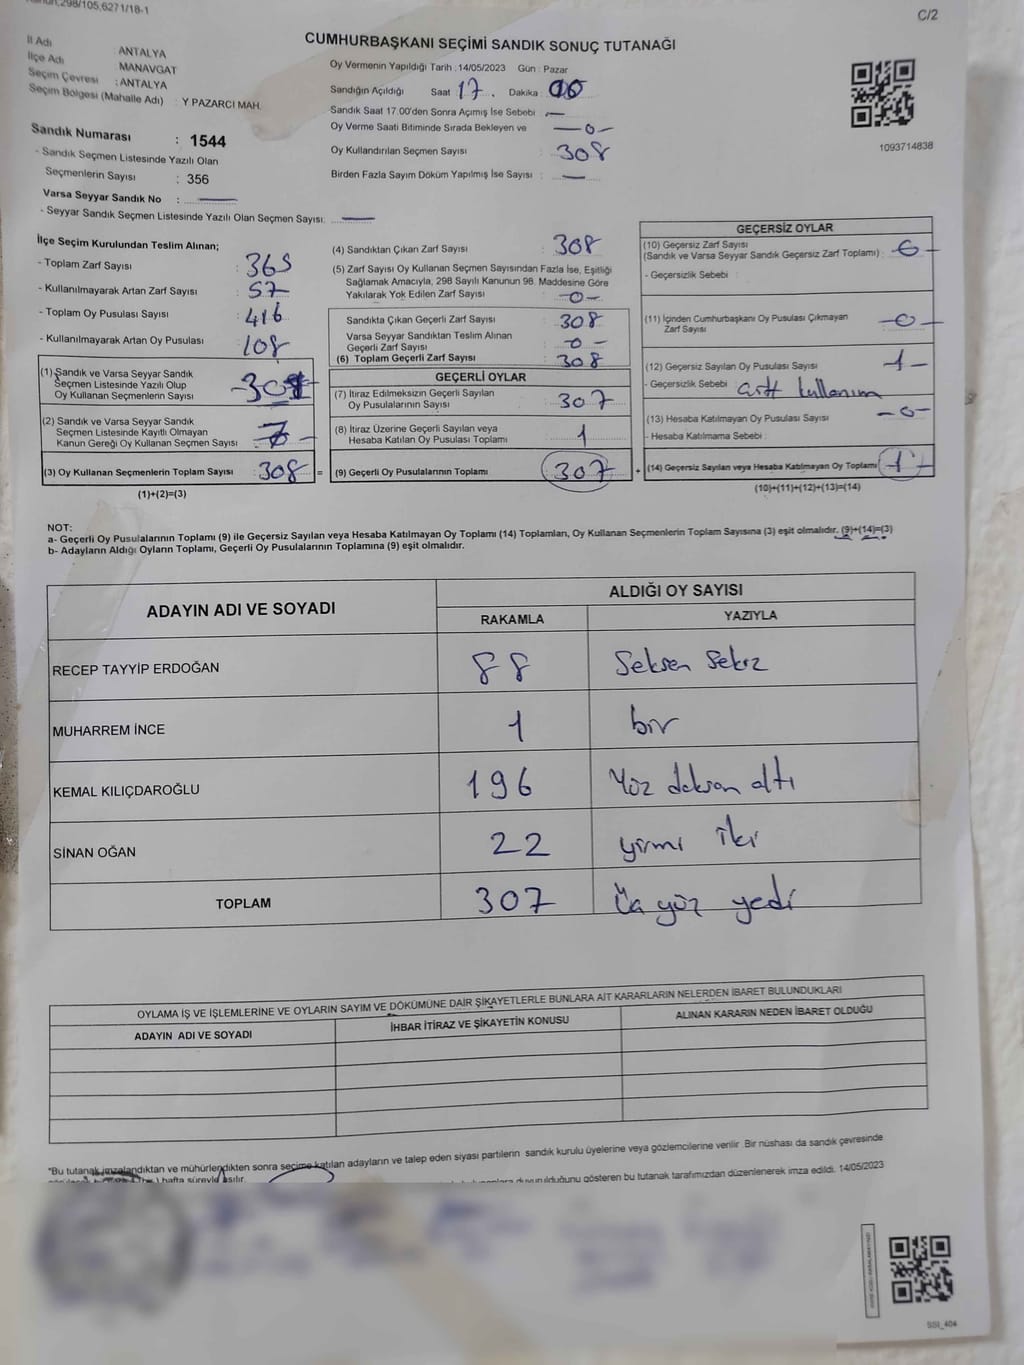 298/105,6271/18-1
C/2
CUMHURBAŞKANI SEÇİMİ SANDIK SONUÇ TUTANAĞI
İl Adı : ANTALYA
İlçe Adı : MANAVGAT
Seçim Çevresi : ANTALYA
Seçim Bölgesi (Mahalle Adı) : Y PAZARCI MAH.
Sandık Numarası : 1544
- Sandık Seçmen Listesinde Yazılı Olan
Seçmenlerin Sayısı : 356
Varsa Seyyar Sandık No : —
- Seyyar Sandık Seçmen Listesinde Yazılı Olan Seçmen Sayısı: —
Oy Vermenin Yapıldığı Tarih :14/05/2023 Gün : Pazar
Sandığın Açıldığı Saat 17 . Dakika :
Sandık Saat 17.00'den Sonra Açımış İse Sebebi : —
Oy Verme Saati Bitiminde Sırada Bekleyen ve — 0 —
Oy Kullandırılan Seçmen Sayısı : 308
Birden Fazla Sayım Döküm Yapılmış İse Sayısı : —
1093714838
İlçe Seçim Kurulundan Teslim Alınan;
- Toplam Zarf Sayısı : 365
- Kullanılmayarak Artan Zarf Sayısı : 57
- Toplam Oy Pusulası Sayısı : 416
- Kullanılmayarak Artan Oy Pusulası : 108
(1) Sandık ve Varsa Seyyar Sandık
Seçmen Listesinde Yazılı Olup
Oy Kullanan Seçmenlerin Sayısı
(2) Sandık ve Varsa Seyyar Sandık
Seçmen Listesinde Kayıtlı Olmayan
Kanun Gereği Oy Kullanan Seçmen Sayısı
(3) Oy Kullanan Seçmenlerin Toplam Sayısı : 308 =
(1)+(2)=(3)
(4) Sandıktan Çıkan Zarf Sayısı : 308
(5) Zarf Sayısı Oy Kullanan Seçmen Sayısından Fazla İse, Eşitliği
Sağlamak Amacıyla, 298 Sayılı Kanunun 98. Maddesine Göre
Yakılarak Yok Edilen Zarf Sayısı : -0-
Sandıkta Çıkan Geçerli Zarf Sayısı : 308
Varsa Seyyar Sandıktan Teslim Alınan
Geçerli Zarf Sayısı : -0-
(6) Toplam Geçerli Zarf Sayısı : 308
GEÇERLİ OYLAR
(7) İtiraz Edilmeksizin Geçerli Sayılan
Oy Pusulalarının Sayısı : 307
(8) İtiraz Üzerine Geçerli Sayılan veya
Hesaba Katılan Oy Pusulası Toplamı : 1
(9) Geçerli Oy Pusulalarının Toplamı : 307 +
GEÇERSİZ OYLAR
(10) Geçersiz Zarf Sayısı
(Sandık ve Varsa Seyyar Sandık Geçersiz Zarf Toplamı) :
- Geçersizlik Sebebi :
(11) İçinden Cumhurbaşkanı Oy Pusulası Çıkmayan
Zarf Sayısı : -0-
(12) Geçersiz Sayılan Oy Pusulası Sayısı : 1 -
- Geçersizlik Sebebi : kullanım
(13) Hesaba Katılmayan Oy Pusulası Sayısı : -0-
- Hesaba Katılmama Sebebi :
(14) Geçersiz Sayılan veya Hesaba Katılmayan Oy Toplamı : 1 -
(10)+(11)+(12)+(13)=(14)
NOT:
a- Geçerli Oy Pusulalarının Toplamı (9) ile Geçersiz Sayılan veya Hesaba Katılmayan Oy Toplamı (14) Toplamları, Oy Kullanan Seçmenlerin Toplam Sayısına (3) eşit olmalıdır. (9)+(14)=(3)
b- Adayların Aldığı Oyların Toplamı, Geçerli Oy Pusulalarının Toplamına (9) eşit olmalıdır.
ADAYIN ADI VE SOYADI
ALDIĞI OY SAYISI
RAKAMLA YAZIYLA
RECEP TAYYİP ERDOĞAN 88 Seksen Sekiz
MUHARREM İNCE 1 bir
KEMAL KILIÇDAROĞLU 196 Yüz doksan altı
SİNAN OĞAN 22 yirmi iki
TOPLAM 307 Üç yüz yedi
OYLAMA İŞ VE İŞLEMLERİNE VE OYLARIN SAYIM VE DÖKÜMÜNE DAİR ŞİKAYETLERLE BUNLARA AİT KARARLARIN NELERDEN İBARET BULUNDUKLARI
ADAYIN ADI VE SOYADI İHBAR İTİRAZ VE ŞİKAYETİN KONUSU ALINAN KARARIN NEDEN İBARET OLDUĞU
*Bu tutanak imzalandıktan ve mühürlendikten sonra seçime katılan adayların ve talep eden siyasi partilerin sandık kurulu üyelerine veya gözlemcilerine verilir Bir nüshası da sandık çevresinde
hafta süreyle asılır. duyurulduğunu gösteren bu tutanak tarafımızdan düzenlenerek imza edildi. 14/05/2023
SSI_404